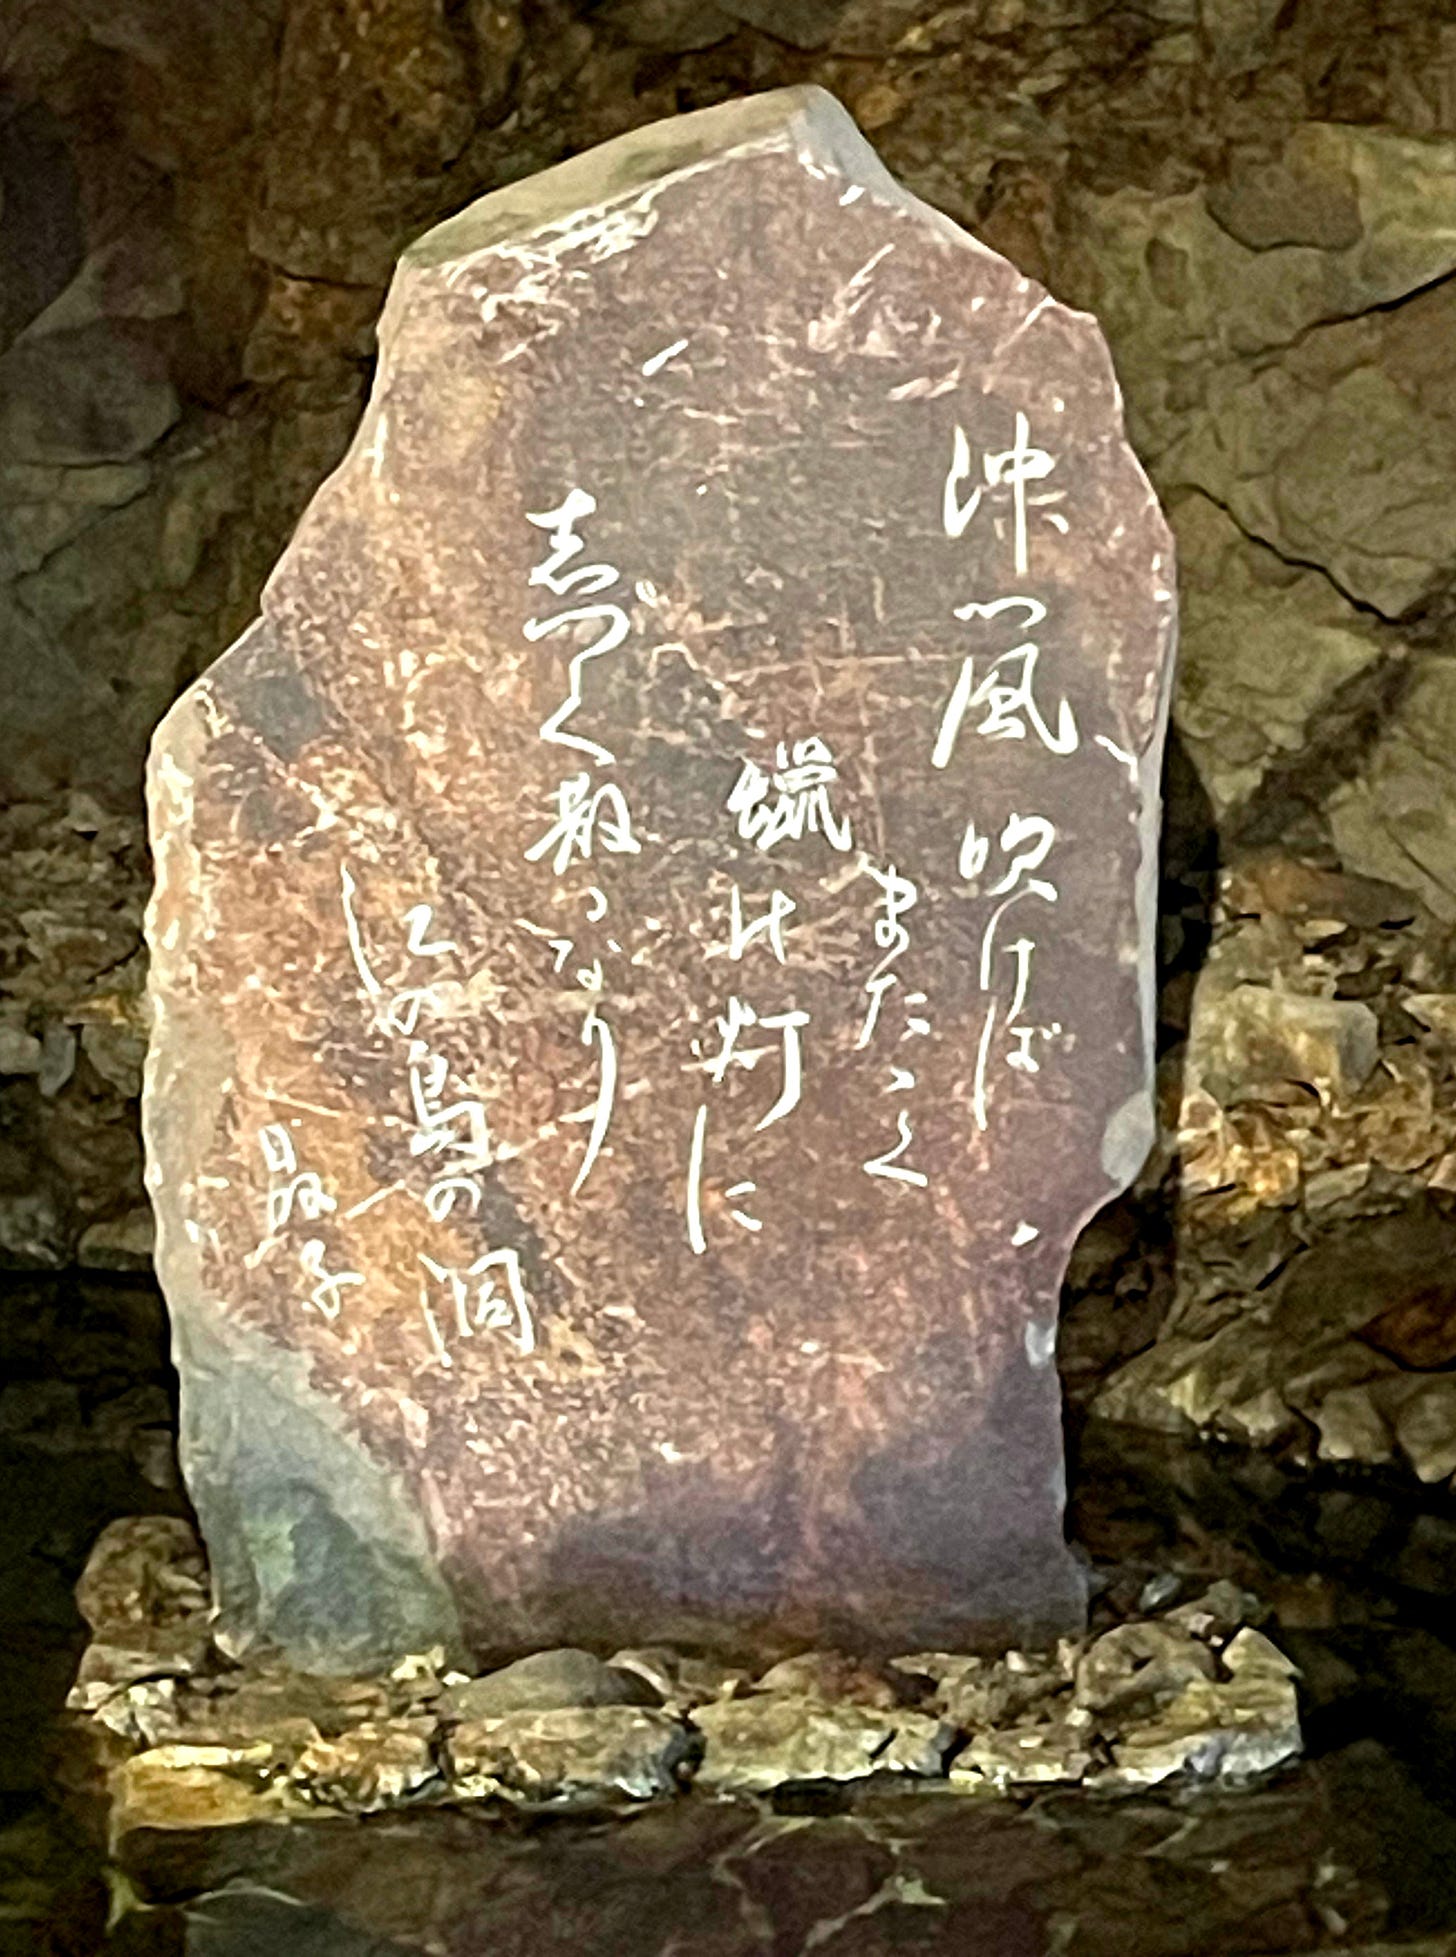 沖つ風
吹けば
またゝく
蝋の灯に
志づく散るなり
江の島の洞
晶子